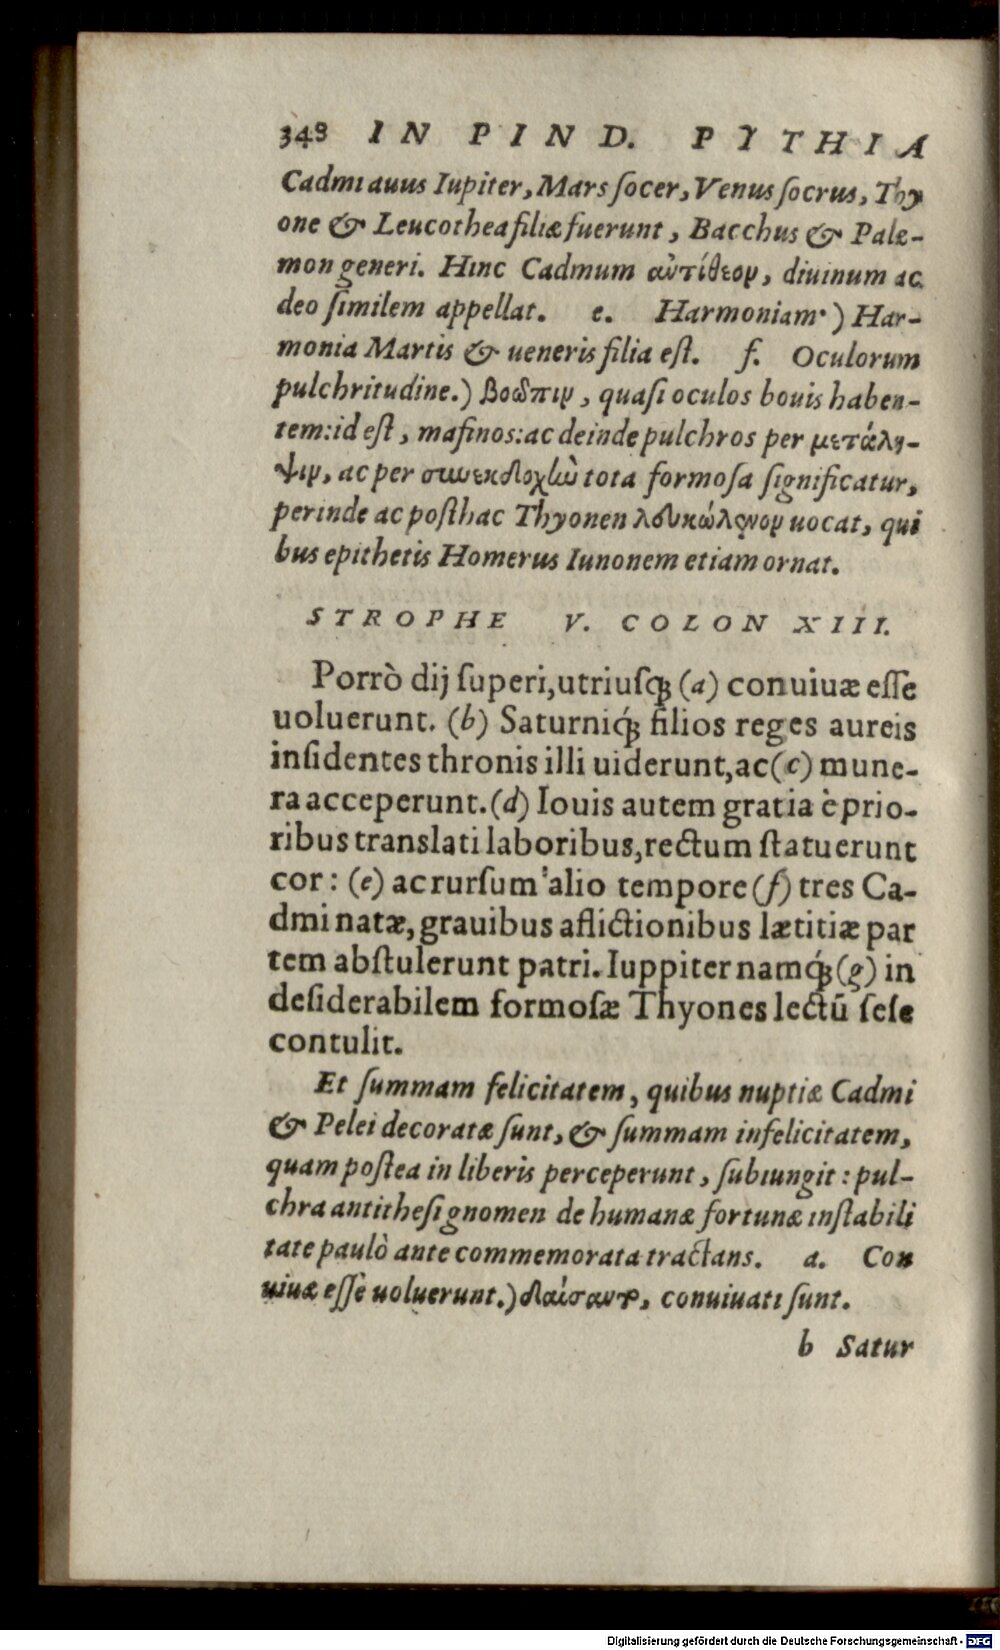 348 IN PIND. PYTHIA
Cadmi auus Iupiter, Mars ſocer, Venus ſocrus, Thy
one & Leucothea filiæ fuerunt, Bacchus & Palæ-
mon generi. Hinc Cadmum ἀντίθεον, diuinum ac
deo ſimilem appellat. e. Harmoniam.) Har-
monia Martis & ueneris filia eſt. f. Oculorum
pulchritudine.) βοῶπιν, quaſi oculos bouis haben-
tem: id eſt, maſinos: ac deinde pulchros per μετάλη-
ψιν, ac per συνεκδοχὼ tota formoſa ſignificatur,
perinde ac poſthac Thyonen λευκώλενον uocat, qui
bus epithetis Homerus Iunonem etiam ornat.
STROPHE V. COLON XIII.
Porrò dij ſuperi, utriuſq́; (a) conuiuæ eſſe
uoluerunt. (b) Saturniq́; filios reges aureis
inſidentes thronis illi uiderunt, ac (c) mune-
ra acceperunt. (d) Iouis autem gratia è prio-
ribus translati laboribus, rectum ſtatuerunt
cor: (e) ac rurſum alio tempore (f) tres Ca-
dmi natæ, grauibus aflictionibus lætitiæ par
tem abſtulerunt patri. Iuppiter namq́; (g) in
deſiderabilem formoſæ Thyones lectū ſeſe
contulit.
Et ſummam felicitatem, quibus nuptiæ Cadmi
& Pelei decoratæ ſunt, & ſummam infelicitatem,
quam poſtea in liberis perceperunt, ſubiungit: pul-
chra antitheſi gnomen de humanæ fortunæ inſtabili
tate paulò ante commemorata tractans. a. Con
uiuæ eſſe uoluerunt.) δαίσαντο, conuiuati ſunt.
b Satur
Digitalisierung gefördert durch die Deutsche Forschungsgemeinschaft - DFG